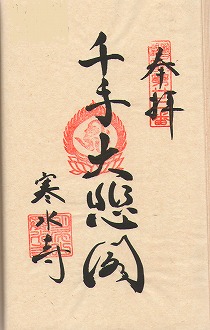 奉拝
千手大悲閣
寒水寺